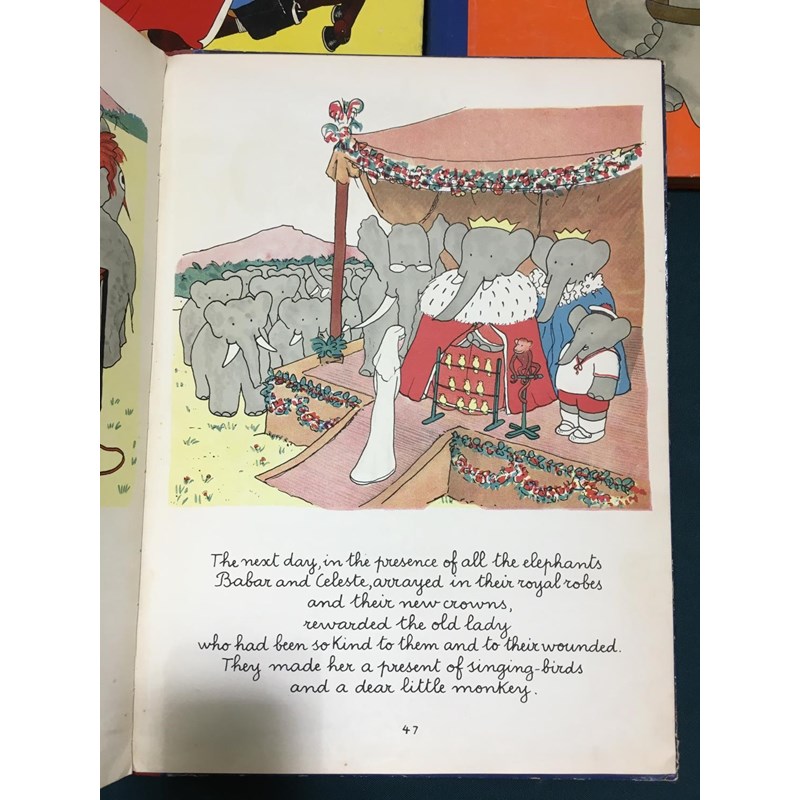 The next day, in the presence of all the elephants
Babar and Celeste, arrayed in their royal robes
and their new crowns,
rewarded the old lady
who had been so kind to them and to their wounded.
They made her a present of singing-birds
and a dear little monkey.
47